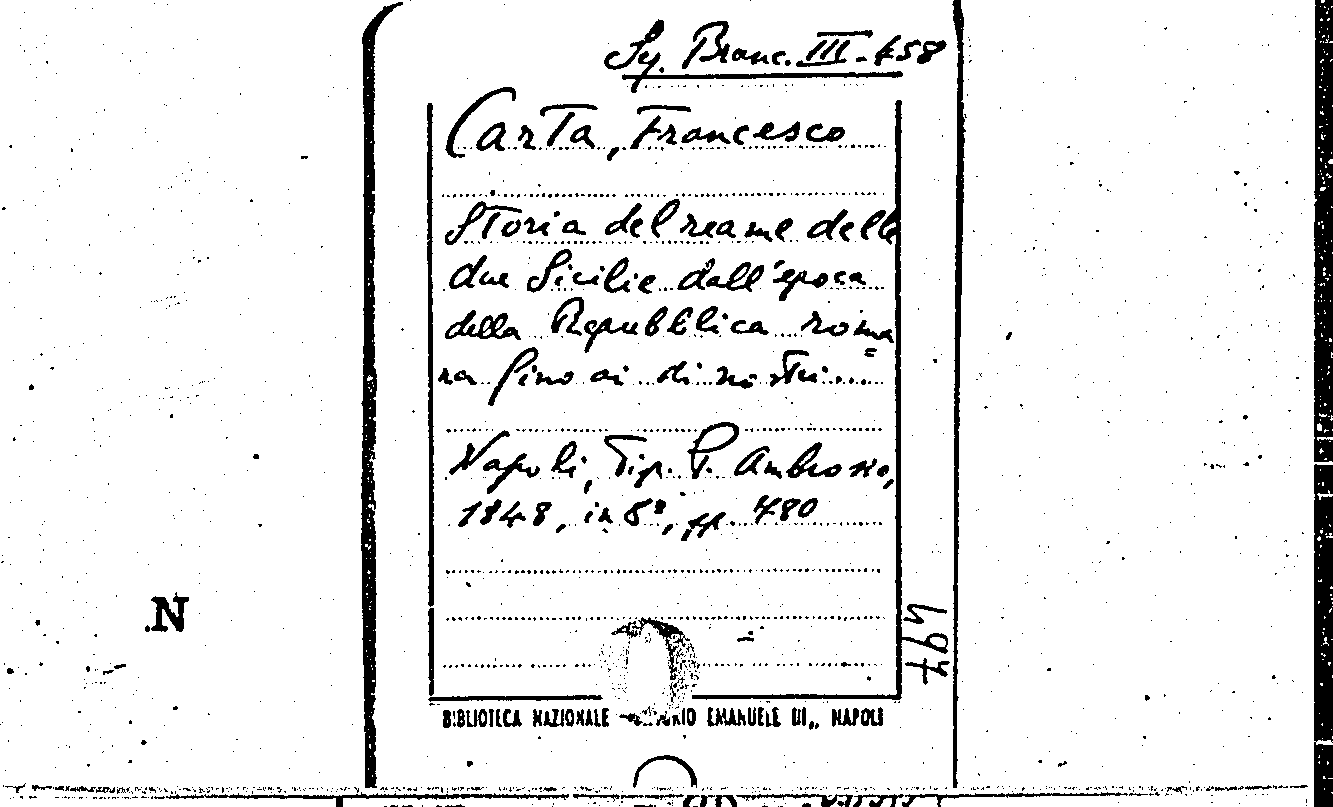 Sy. Branc. III. 458
Carta, Francesco
Storia del reame delle
due Sicilie dall'epoca
della Repubblica roma=
na fino ai dì nostri...
Napoli, Tip. P. Ambrosio,
1848, in 8°, pp. 480
497
N
BIBLIOTECA NAZIONALE EMANUELE III,, NAPOLI